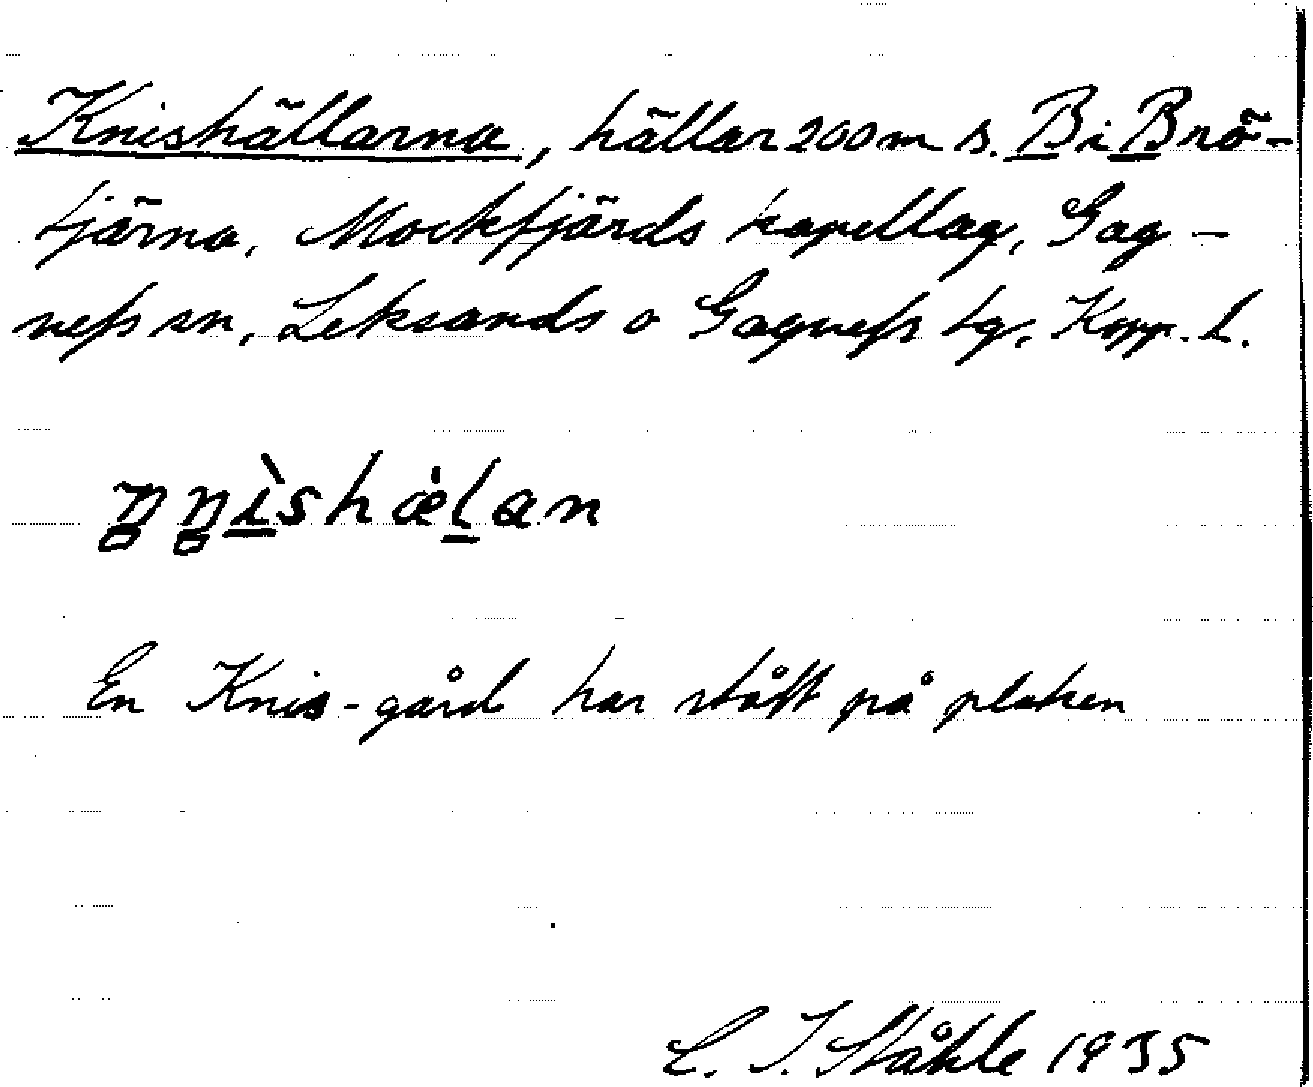 Knishällarna, hällar 200 m s. B i Brö-
tjärna, Mockfjärds kapellag, Gag-
nefs sn, Leksands o Gagnefs tg, Kopp. l.
En Knis-gård har stått på platsen
C. I. Ståhle 1935